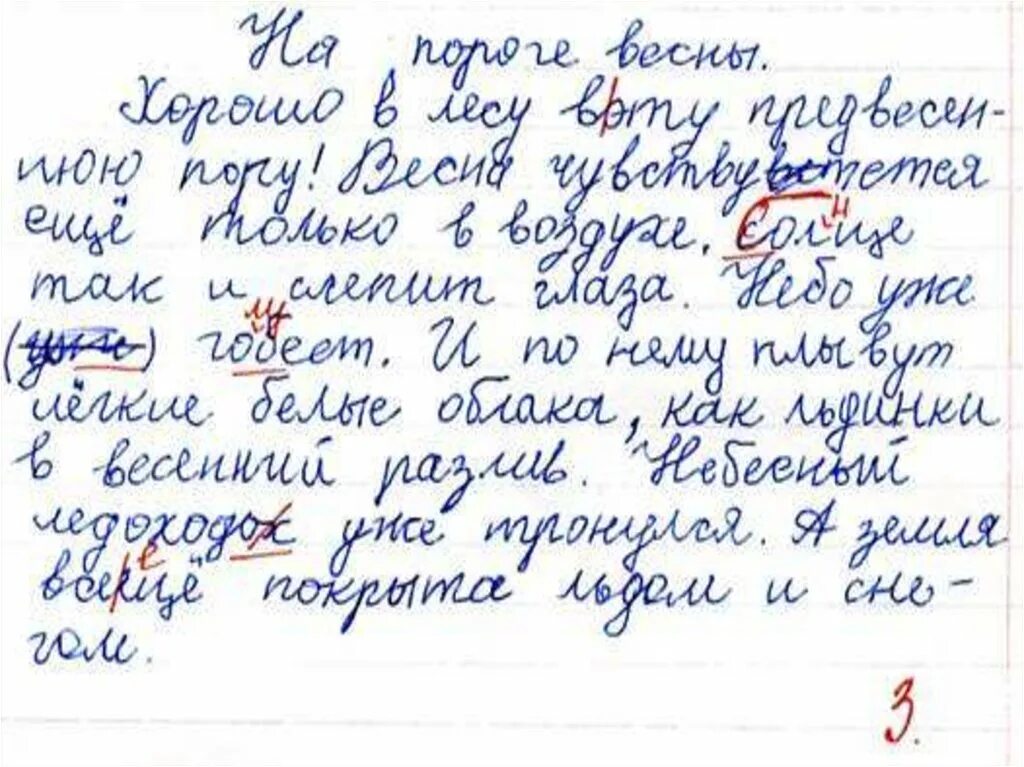 На пороге весны.
Хорошо в лесу вэту предвесен-
нюю пору! Весна чувствуется
ещё только в воздухе. Солце
н
так и слепит глаза. Небо уже
лу
() гобеет. И по нему плывут
лёгкие белые облака, как льдинки
в весенний разлив. Небесный
ледоходох уже тронулся. А земля
е
всеещё покрыта льдом и сне-
гом.
3.